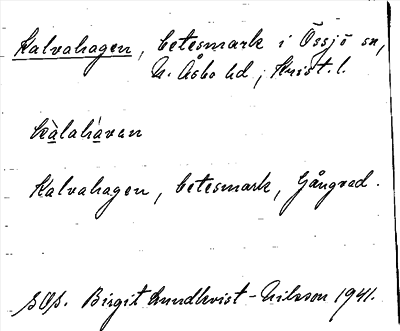 Kalvahagen, betesmark i Össjö sn,
N. Åsbo hd, Krist. l.
kàlahávan
Kalvahagen, betesmark, Gångvad.
Birgit Lundkvist-Nilsson 1941.